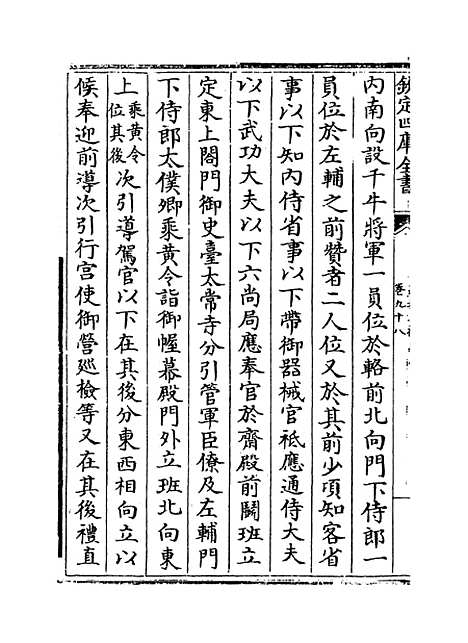 欽定四庫全書
卷九十八
内南向設千牛將軍一員位於輅前北向門下侍郎一
員位於左輔之前贊者二人位又於其前少項知客省
事以下知内侍省事以下帶御器械官祗應通侍大夫
以下武功大夫以下六尚局應奉官於齋殿前鬭班立
定東上閤門御史臺太常寺分引管軍臣僚及左輔門
下侍郎太僕卿乘黄令詣御幄幕殿門外立班北向東
上乘黄令位其後次引導駕官以下在其後分東西相向立以
候奉迎前導次引行宫使御營廵檢等又在其後禮直